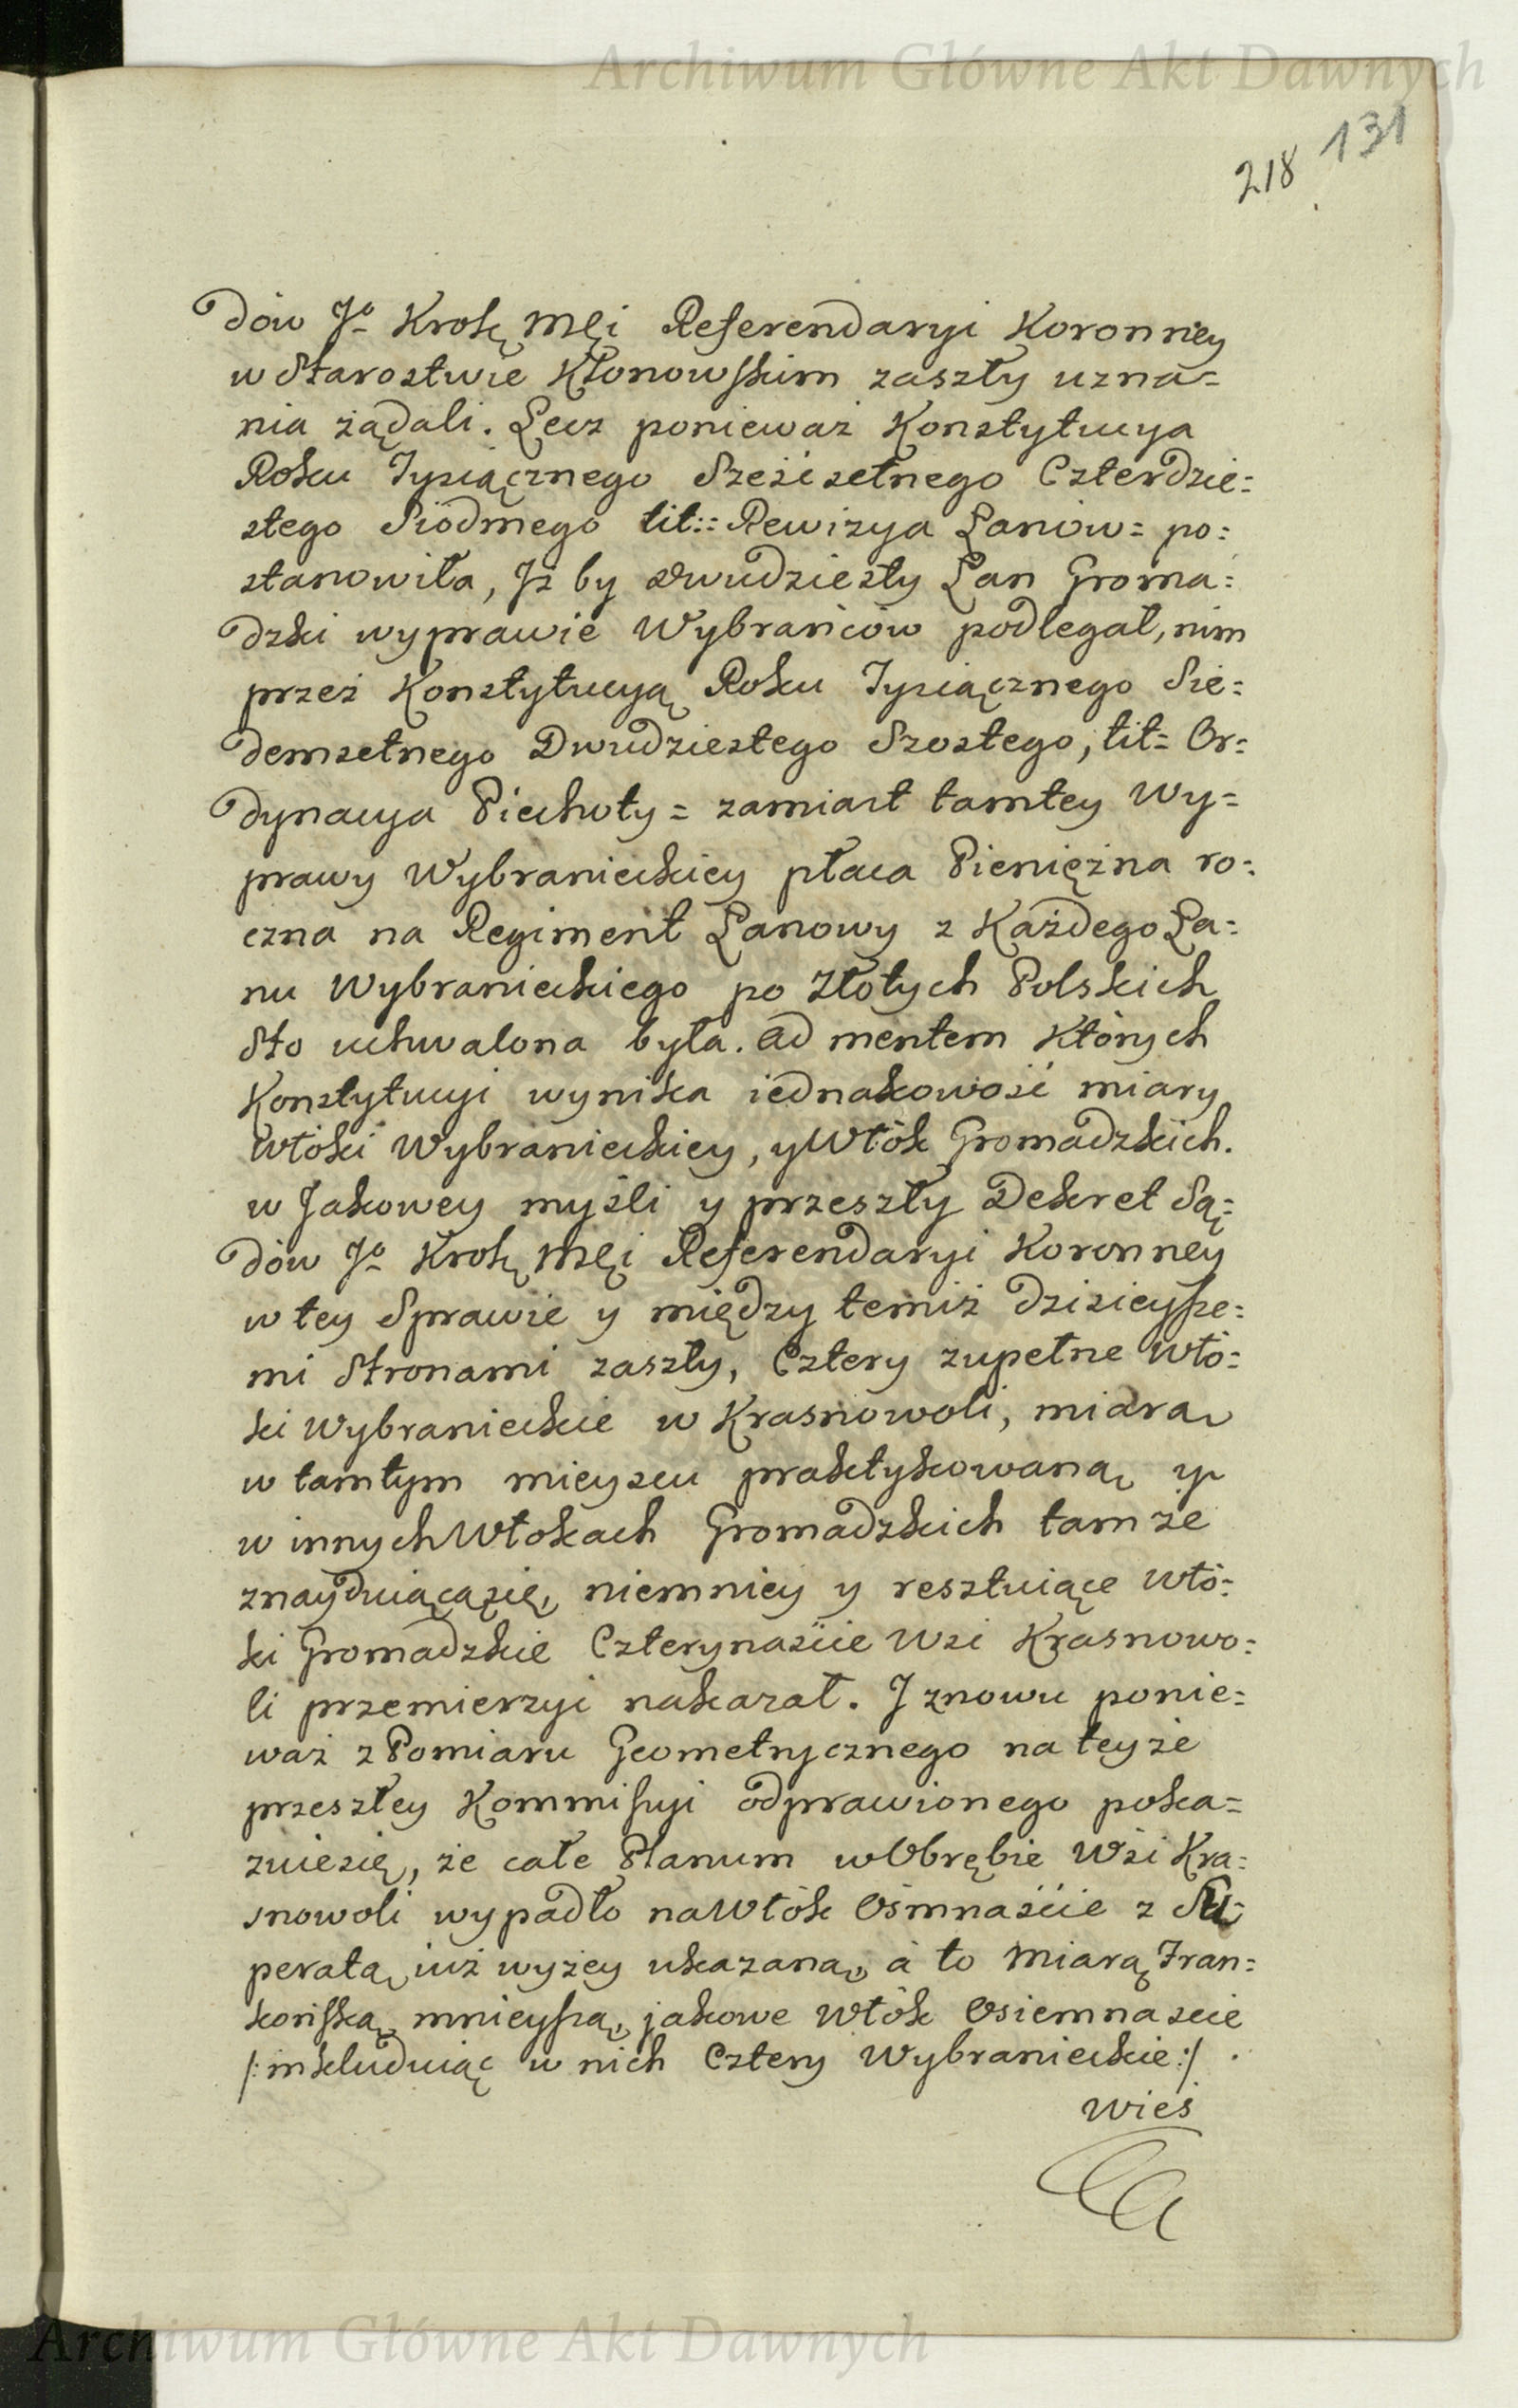 Archiwum Główne Akt Dawnych
131
218
dów Jº Krolę Męi Referendaryi Koronney
w Starostwie Kłonowskim zaszły uzna=
nia żądali. Lecz ponieważ Konstytucya
Roku Tysiącznego Sześćsetnego Czterdzie=
stego Siódmego tit:: Rewizya Łanów= po=
stanowiła, Jż by dwudziesty Łan Groma=
dzki wyprawie Wybrańców podlegał, nim
przez Konstytucyą Roku Tysiącznego Sie=
demsetnego Dwudziestego Szostego, tit= Or=
dynacya Piechoty= zamiast tamtey Wy=
prawy Wybranieckiey płaca Pieniężna ro=
czna na Regiment Łanowy z Każdego Ła=
nu Wybranieckiego po Złotych Polskich
Sto uchwalona była. Ad mentem Których
Konstytucyi wynika iednakowość miary
Włóki Wybranieckiey, y Włók Gromadzkich.
w Jakowey myśli y przeszły Dekret Są=
dów Jº Krolę Męi Referendaryi Koronney
w tey Sprawie y między temiż dzisieysze=
mi Stronami zaszły, Cztery zupełne Włó=
ki Wybranieckie w Krasnowoli, miarą
w tamtym mieyscu praktykowaną y
w innych Włokach Gromadzkich tamże
znayduiącąsię, niemniey y resztuiące Włó=
ki Gromadzkie Czterynaście Wsi Krasnowo=
li przemierzyć nakazał. J znowu ponie=
waż z Pomiaru Geometrycznego na teyże
przeszłey Kommissyi odprawionego poka=
zuiesię, że całe Planum w Obrębie Wsi Kra=
snowoli wypadło na Włók Ośmnaście z Su=
peratą iuż wyżey ukazaną, a to Miarą Fran=
końską mnieyszą, jakowe Włók Osiemnaście
/: inkluduiąc w nich Cztery Wybranieckie :/
Wieś
Archiwum Główne Akt Dawnych